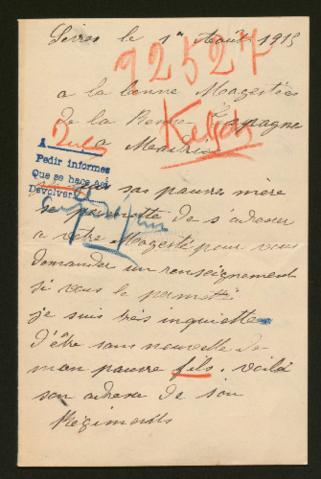 le 1er Août 1915
92527
a la bonne Magestée
de la Renne Espagne
a Madrid
A
Pedir informes
Que se hace
Devolver
sas pauvre mère
se permette de s'adresser
a votre Magesté pour vous
demander un renseignement
si vous le permetté
je suis très inquiette
d'être sans nouvelle de
mon pauvre fils. voilà
son adresse de son
Régiments